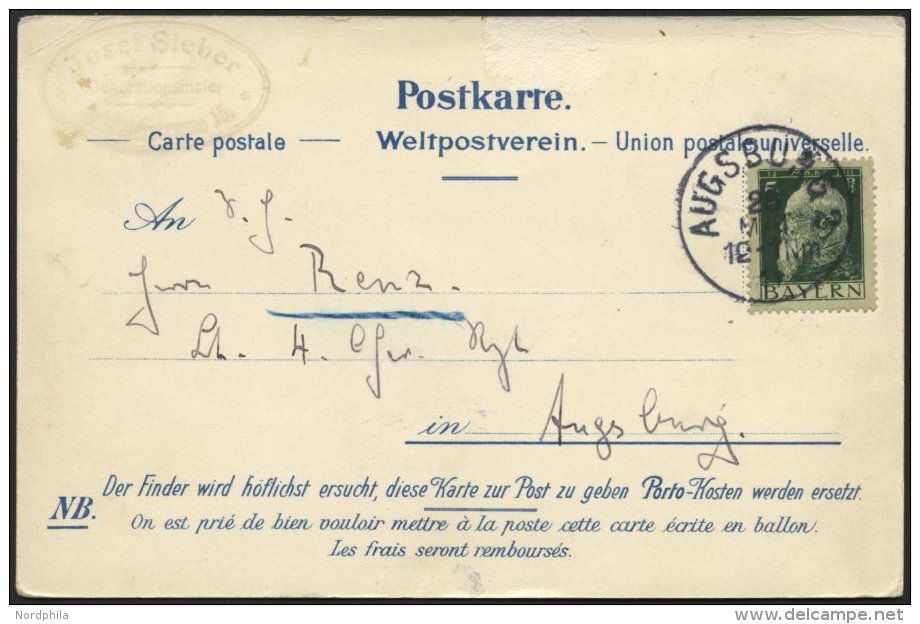 Josef Sieber
Dekorationsmaler
Postkarte.
Carte postale — Weltpostverein. — Union postale universelle.
AUGSBURG
BAYERN
5
An
Herrn Renz.
Lt. 4. Chev. Rgt
in Augsburg.
NB. Der Finder wird höflichst ersucht, diese Karte zur Post zu geben Porto-Kosten werden ersetzt.
On est prié de bien vouloir mettre à la poste cette carte écrite en ballon.
Les frais seront remboursés.
Nordphila
delcampe.net